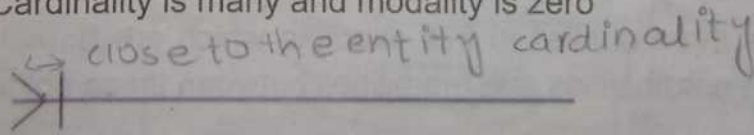 Cardinality is many and modality is zero
close to the entity cardinality